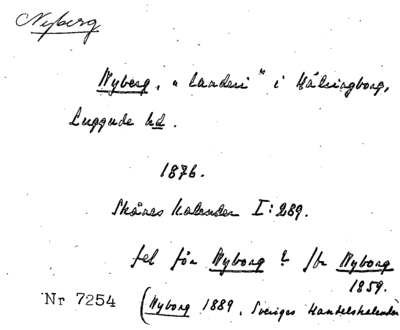 Nyberg
Nyberg, "landeri" i Hälsingborg,
Luggude hd.
1876.
Skånes kalender I:289.
fel för Nyborg? jfr Nyborg
1859.
Nr 7254 (Nyborg 1889, Sveriges Handelskalender